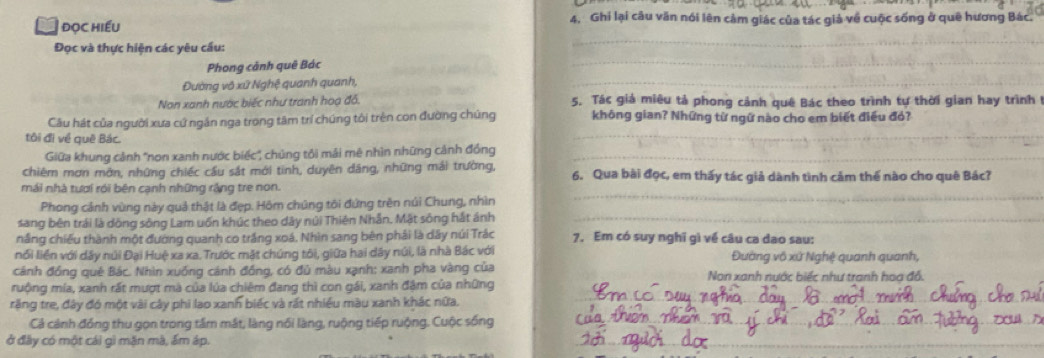 ĐỌC HIỂU
Đọc và thực hiện các yêu cầu:
Phong cảnh quê Bác
Đường vô xứ Nghệ quanh quanh,
Non xanh nước biếc như tranh hoạ đồ.
Câu hát của người xưa cứ ngân nga trong tâm trí chúng tôi trên con đường chúng
tôi đi về quê Bác.
Giữa khung cảnh "non xanh nước biếc", chúng tôi mải mê nhìn những cánh đồng
chiêm mơn mởn, những chiếc cầu sắt mới tinh, duyên dáng, những mái trường,
mái nhà tươi rói bên cạnh những rặng tre non.
Phong cảnh vùng này quả thật là đẹp. Hôm chúng tôi đứng trên núi Chung, nhìn
sang bên trái là dòng sông Lam uốn khúc theo dãy núi Thiên Nhẫn. Mặt sông hắt ánh
nắng chiếu thành một đường quanh co trắng xoá. Nhìn sang bên phải là dãy núi Trác
nối liền với dãy núi Đại Huệ xa xa. Trước mặt chúng tôi, giữa hai dãy núi, là nhà Bác với
cánh đồng quê Bác. Nhìn xuống cánh đồng, có đủ màu xanh: xanh pha vàng của
ruộng mía, xanh rất mượt mà của lúa chiêm đang thì con gái, xanh đậm của những
rặng tre, đây đó một vài cây phi lao xanh biếc và rất nhiều màu xanh khác nữa.
Cả cánh đồng thu gọn trong tầm mắt, làng nối làng, ruộng tiếp ruộng. Cuộc sống
ở đây có một cái gì mặn mà, ấm áp.
4. Ghi lại câu văn nói lên cảm giác của tác giả về cuộc sống ở quê hương Bác.
5. Tác giả miêu tả phong cảnh quê Bác theo trình tự thời gian hay trình t
không gian? Những từ ngữ nào cho em biết điều đó?
6. Qua bài đọc, em thấy tác giả dành tình cảm thế nào cho quê Bác?
7. Em có suy nghĩ gì về câu ca dao sau:
Đường vô xứ Nghệ quanh quanh,
Non xanh nước biếc như tranh hoạ đồ.
Em có suy nghĩ đây là một minh chứng cho
của thiên nhiên và ý chí, để lại ấn tượng sau
tới người đọc